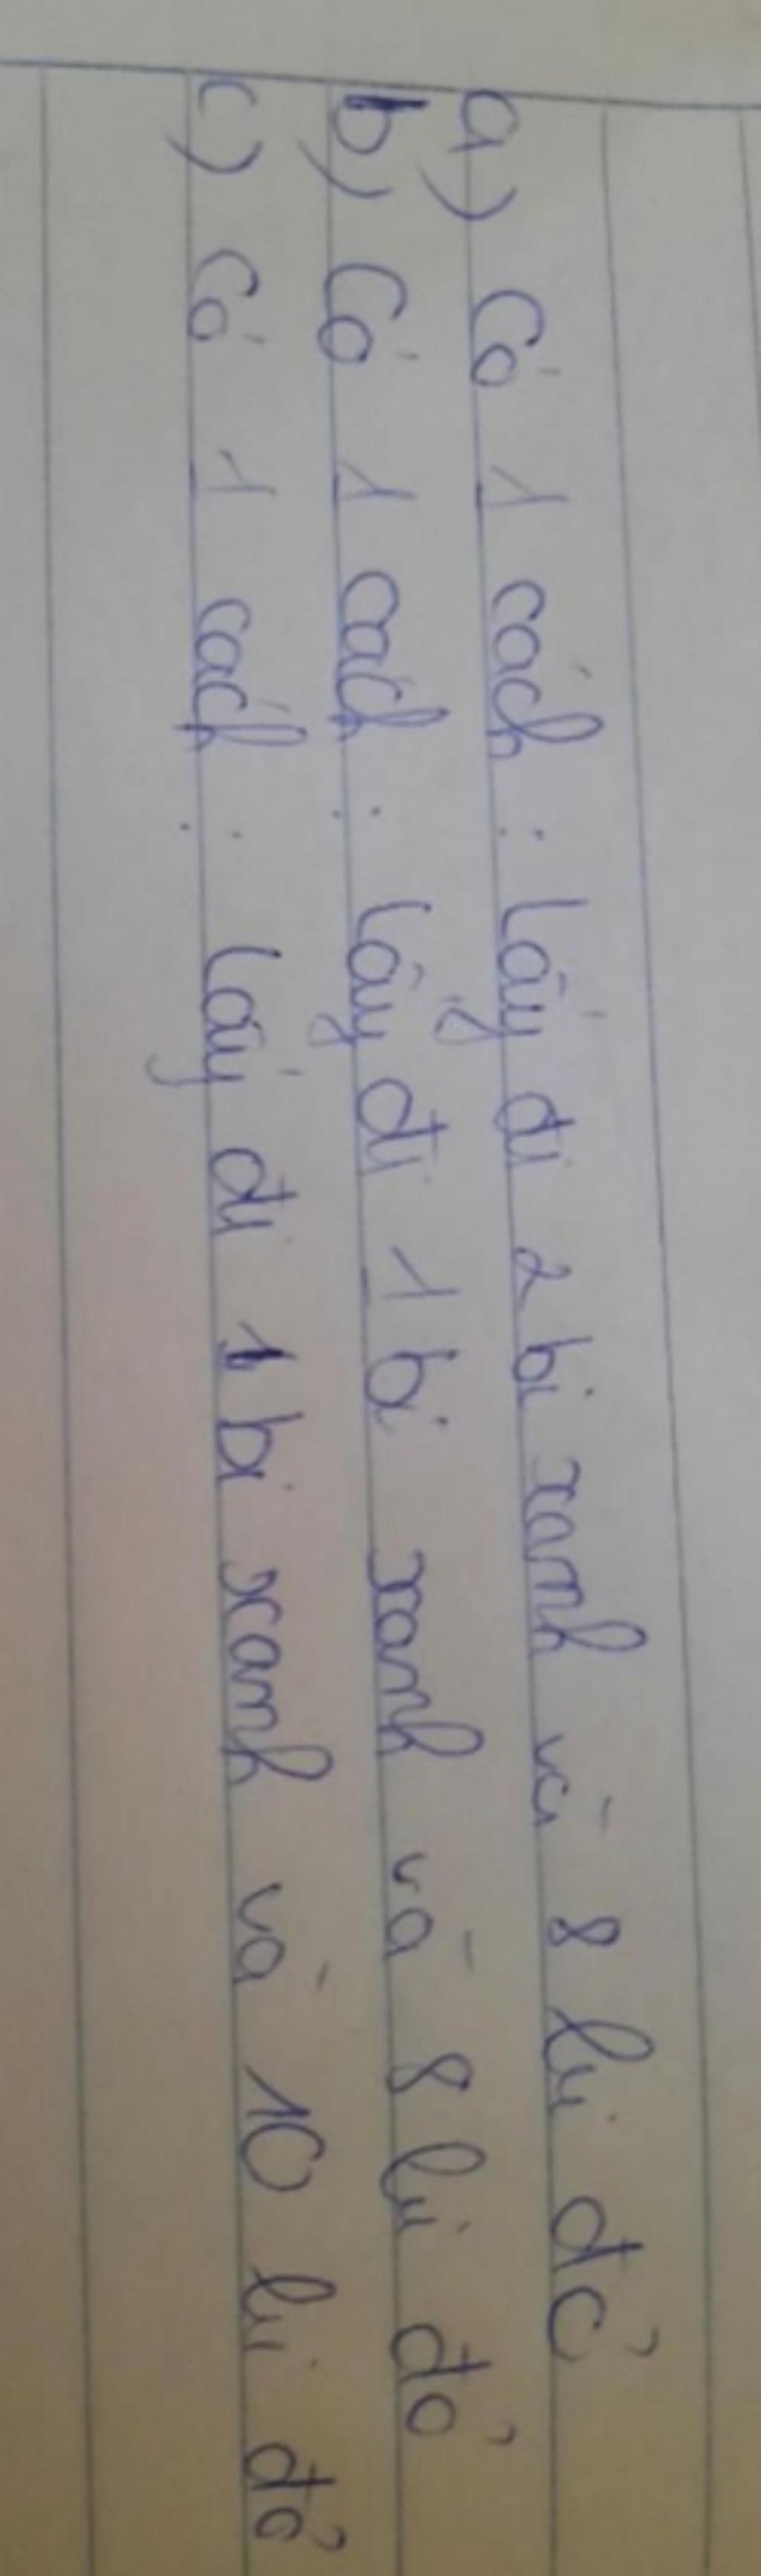 a) Có 1 cách : Lấy đi 2 bi xanh và 8 bi đỏ
b) Có 1 cách : lấy đi 1 bi xanh và 8 bi đỏ
c) Có 1 cách : lấy đi 1 bi xanh và 10 bi đỏ